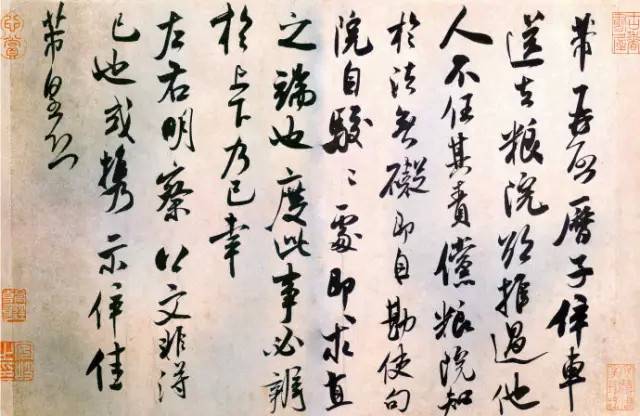 芾再啓曆子倅車
送去粮院欲推過他
人不任其責儻粮院知
於法無礙即自勘使句
院自駮々處即求直
之端也度此事必辨
於上下乃已幸
左右明察以文非得
已也或攜示倅佳
芾皇恐